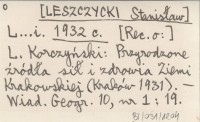 [LESZCZYCKI Stanisław]
L...i. 1932 c. [Rec. o:]
L. Korczyński: Przyrodzone
źródła sił i zdrowia Ziemi
Krakowskiej (Kraków 1931). —
Wiad. Geogr. 10, nr 1 : 19.